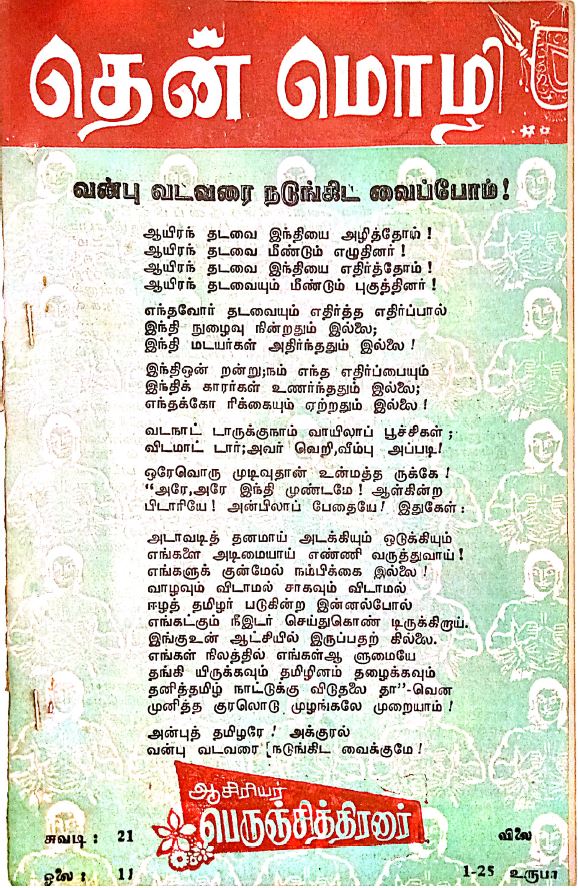 தென் மொழி
வன்பு வடவரை நடுங்கிட வைப்போம்!
ஆயிரந் தடவை இந்தியை அழித்தோம்!
ஆயிரந் தடவை மீண்டும் எழுதினர்!
ஆயிரந் தடவை இந்தியை எதிர்த்தோம்!
ஆயிரந் தடவையும் மீண்டும் புகுத்தினர்!
எந்தவோர் தடவையும் எதிர்த்த எதிர்ப்பால்
இந்தி நுழைவு நின்றதும் இல்லை;
இந்தி மடயர்கள் அதிர்ந்ததும் இல்லை!
இந்திஒன் றன்று;நம் எந்த எதிர்ப்பையும்
இந்திக் காரர்கள் உணர்ந்ததும் இல்லை;
எந்தக்கோ ரிக்கையும் ஏற்றதும் இல்லை!
வடநாட் டாருக்குநாம் வாயிலாப் பூச்சிகள்;
விடமாட் டார்;அவர் வெறி,வீம்பு அப்படி!
ஒரேவொரு முடிவுதான் உன்மத்த ருக்கே!
“அரே,அரே இந்தி முண்டமே! ஆள்கின்ற
பிடாரியே! அன்பிலாப் பேதையே! இதுகேள்:
அடாவடித் தனமாய் அடக்கியும் ஒடுக்கியும்
எங்களை அடிமையாய் எண்ணி வருத்துவாய்!
எங்களுக் குன்மேல் நம்பிக்கை இல்லை!
வாழவும் விடாமல் சாகவும் விடாமல்
ஈழத் தமிழர் படுகின்ற இன்னல்போல்
எங்கட்கும் நீஇடர் செய்துகொண் டிருக்கிறாய்.
இங்குஉன் ஆட்சியில் இருப்பதற் கில்லை.
எங்கள் நிலத்தில் எங்கள்ஆ ளுமையே
தங்கி யிருக்கவும் தமிழினம் தழைக்கவும்
தனித்தமிழ் நாட்டுக்கு விடுதலை தா”-வென
முனித்த குரலொடு முழங்கலே முறையாம்!
அன்புத் தமிழரே! அக்குரல்
வன்பு வடவரை [நடுங்கிட வைக்குமே!
ஆசிரியர்
பெருஞ்சித்திரனார்
சுவடி : 21
விலை
ஓலை : 11
1-25 உருபா